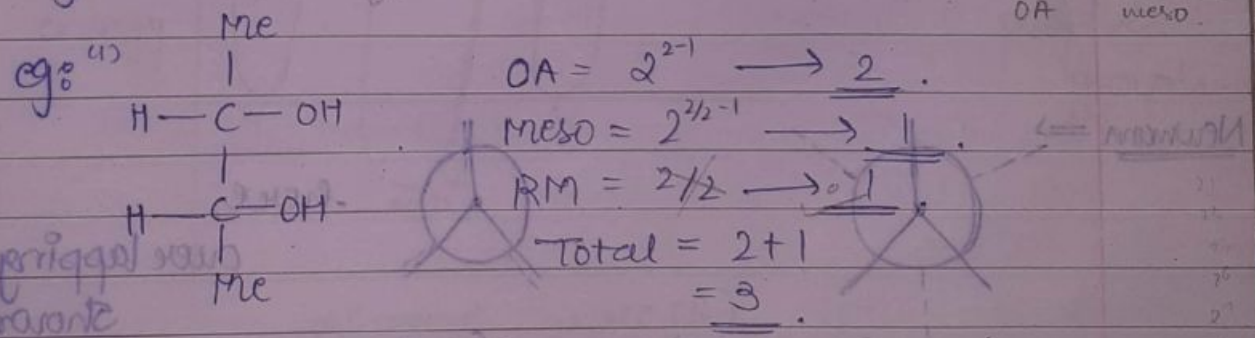 OA meso.
eg: (1)
Me
H — C — OH
H — C — OH
Me
OA = 2^{2-1} ⟶ 2.
Meso = 2^{2/2-1} ⟶ 1.
RM = 2/2 ⟶ 1
Total = 2+1
= 3.
Newman ⟹